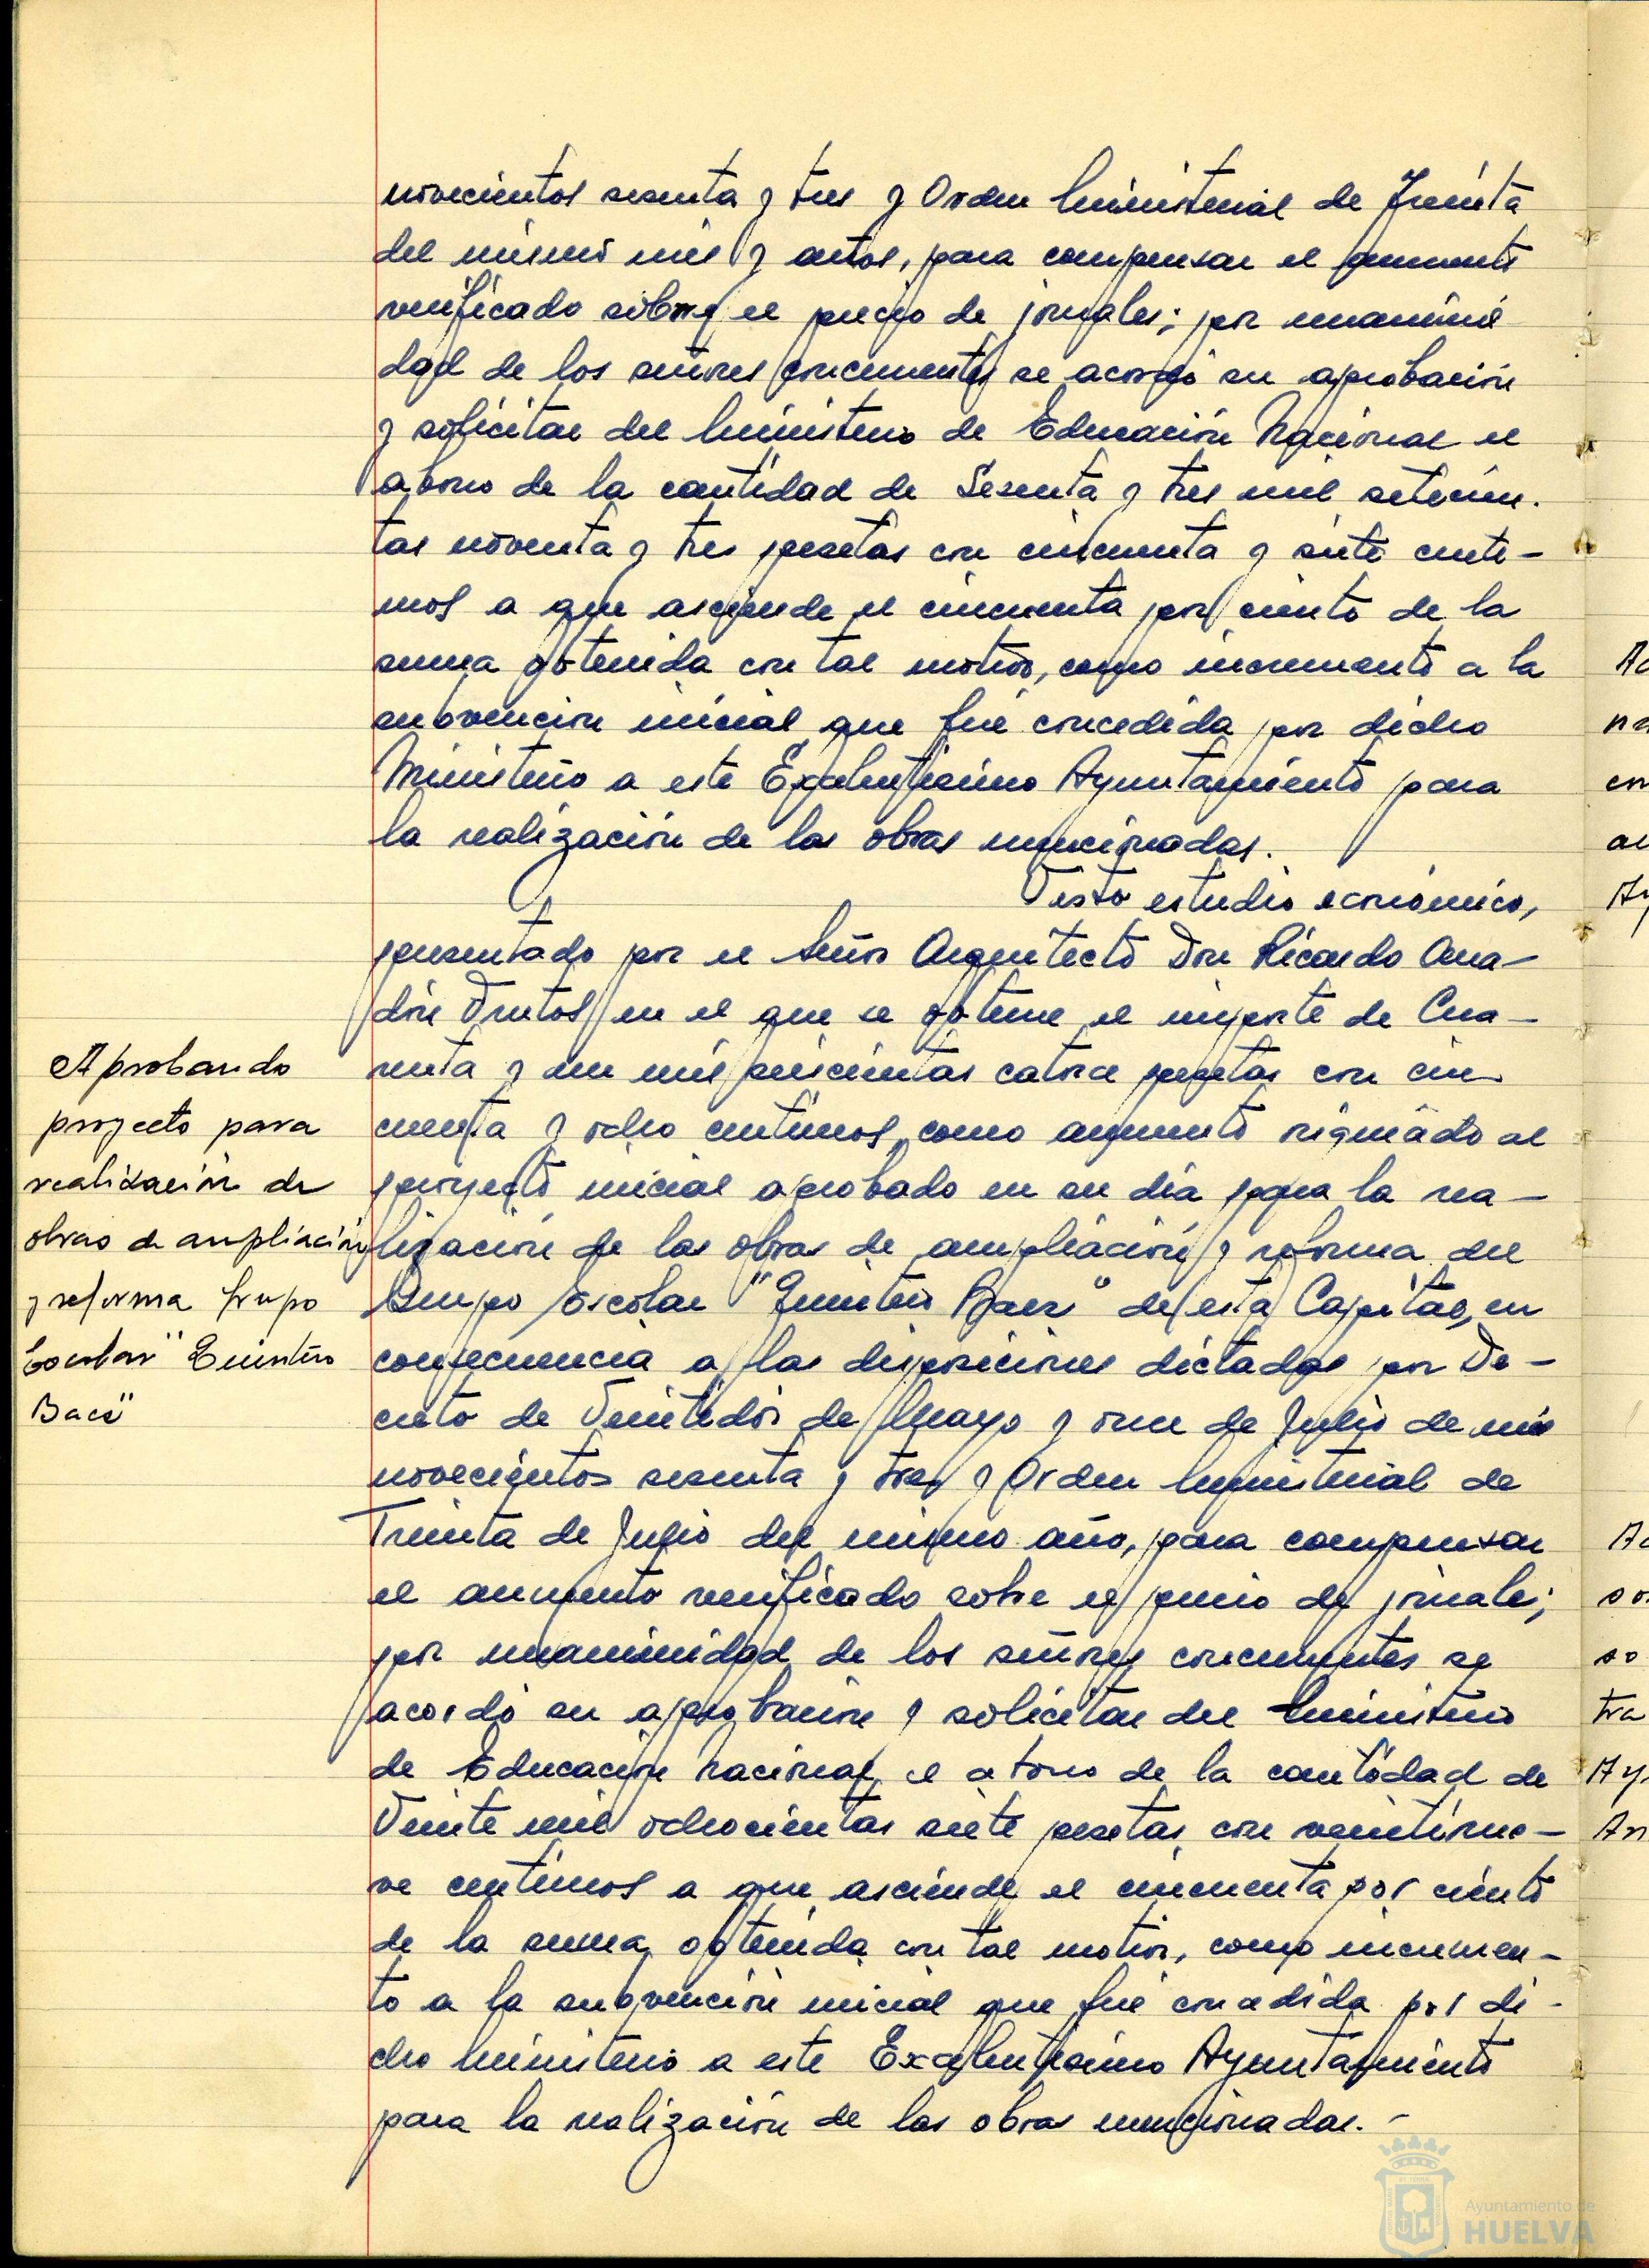 novecientos sesenta y tres y Orden Ministerial de Treinta
del mismo mes y años, para compensar el aumento
verificado sobre el precio de jornales; por unanimi
dad de los señores concurrentes se acordó su aprobación
y solicitar del Ministerio de Educación Nacional el
abono de la cantidad de Sesenta y tres mil setecien-
tas noventa y tres pesetas con cincuenta y siete cénti-
mos a que asciende el cincuenta por ciento de la
suma obtenida con tal motivo, como incremento a la
subvención inicial que fué concedida por dicho
Ministerio a este Excelentísimo Ayuntamiento para
la realización de las obras mencionadas.
Visto estudio económico,
presentado por el Señor Arquitecto Don Ricardo Ana-
dón Frutos en el que se obtiene el importe de Cua-
renta y un mil seiscientas catorce pesetas con cin
cuenta y ocho céntimos, como aumento originado al
proyecto inicial aprobado en su día para la rea-
lización de las obras de ampliación y reforma del
Grupo Escolar "Quintero Baez" de esta Capital, en
consecuencia a las disposiciones dictadas por De-
creto de Veintidós de Mayo y once de Julio de mil
novecientos sesenta y tres y Orden Ministerial de
Treinta de Julio del mismo año, para compensar
el aumento verificado sobre el precio de jornales;
por unanimidad de los señores concurrentes se
acordó su aprobación y solicitar del Ministerio
de Educación Nacional el abono de la cantidad de
Veinte mil ochocientas siete pesetas con veintinue-
ve céntimos a que asciende el cincuenta por ciento
de la suma obtenida con tal motivo, como incremen-
to a la subvención inicial que fué concedida por di-
cho Ministerio a este Excelentísimo Ayuntamiento
para la realización de las obras mencionadas.-
Aprobando
proyecto para
realización de
obras de ampliación
y reforma Grupo
Escolar "Quintero
Baez"
Ayuntamiento de
HUELVA